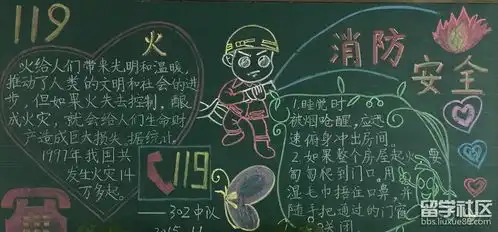 119
火
火给人们带来光明和温暖,
推动了人类的文明和社会的进
步,但如果火失去控制,酿
成火灾,就会给人们生命财
产造成巨大损失,据统计,
1997年我国共
发生火灾14
万多起。
119
——302中队
消防
安全
1.睡觉时
被烟呛醒,应迅
速俯身冲出房间。
2.如果整个房屋起火,要
匍匐爬到门口,用
湿毛巾捂住口鼻,并
随手把通过的门窗
关闭。
留学社区
bbs.liuxue86.com